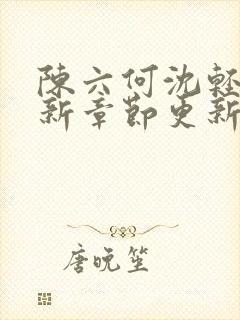 陳六何沈輕
新章節更新
唐晚笙